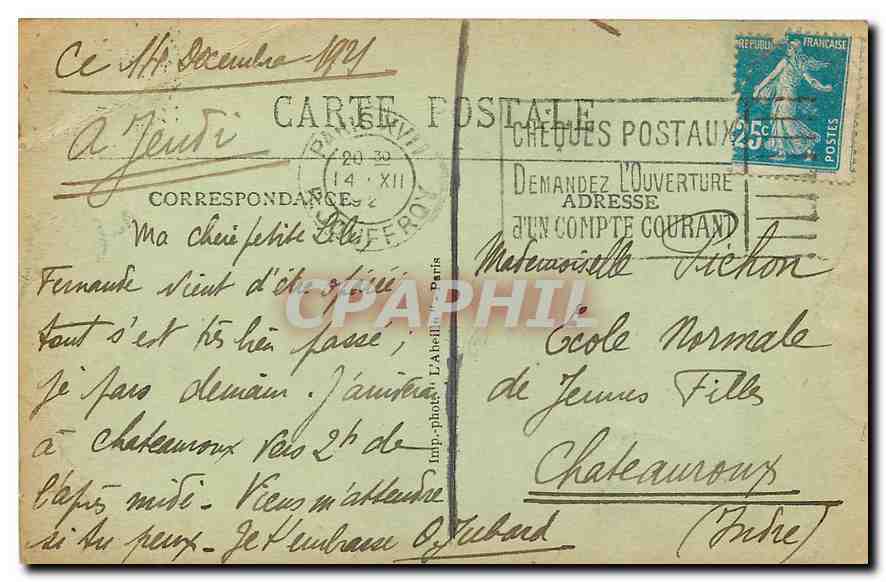 Ce 14 Decembre 1921
A Jeudi
CARTE POSTALE
CORRESPONDANCE
Ma chère petite
Fernande vient d'être opérée
tout s'est très bien passé ;
je pars demain. J'arriverai
à Chateauroux vers 2h de
l'après midi - Viens m'attendre
si tu peux - Je t'embrasse
Imp.-phot. "L'Abeille" - Paris
PARIS XVII
20 30
14 XII
REPUBLIQUE FRANÇAISE
25c
POSTES
CHEQUES POSTAUX
DEMANDEZ L'OUVERTURE
d'UN COMPTE COURANT
ADRESSE
Mademoiselle Pichon
Ecole Normale
de Jeunes Filles
Chateauroux
(Indre)
CPAPHIL